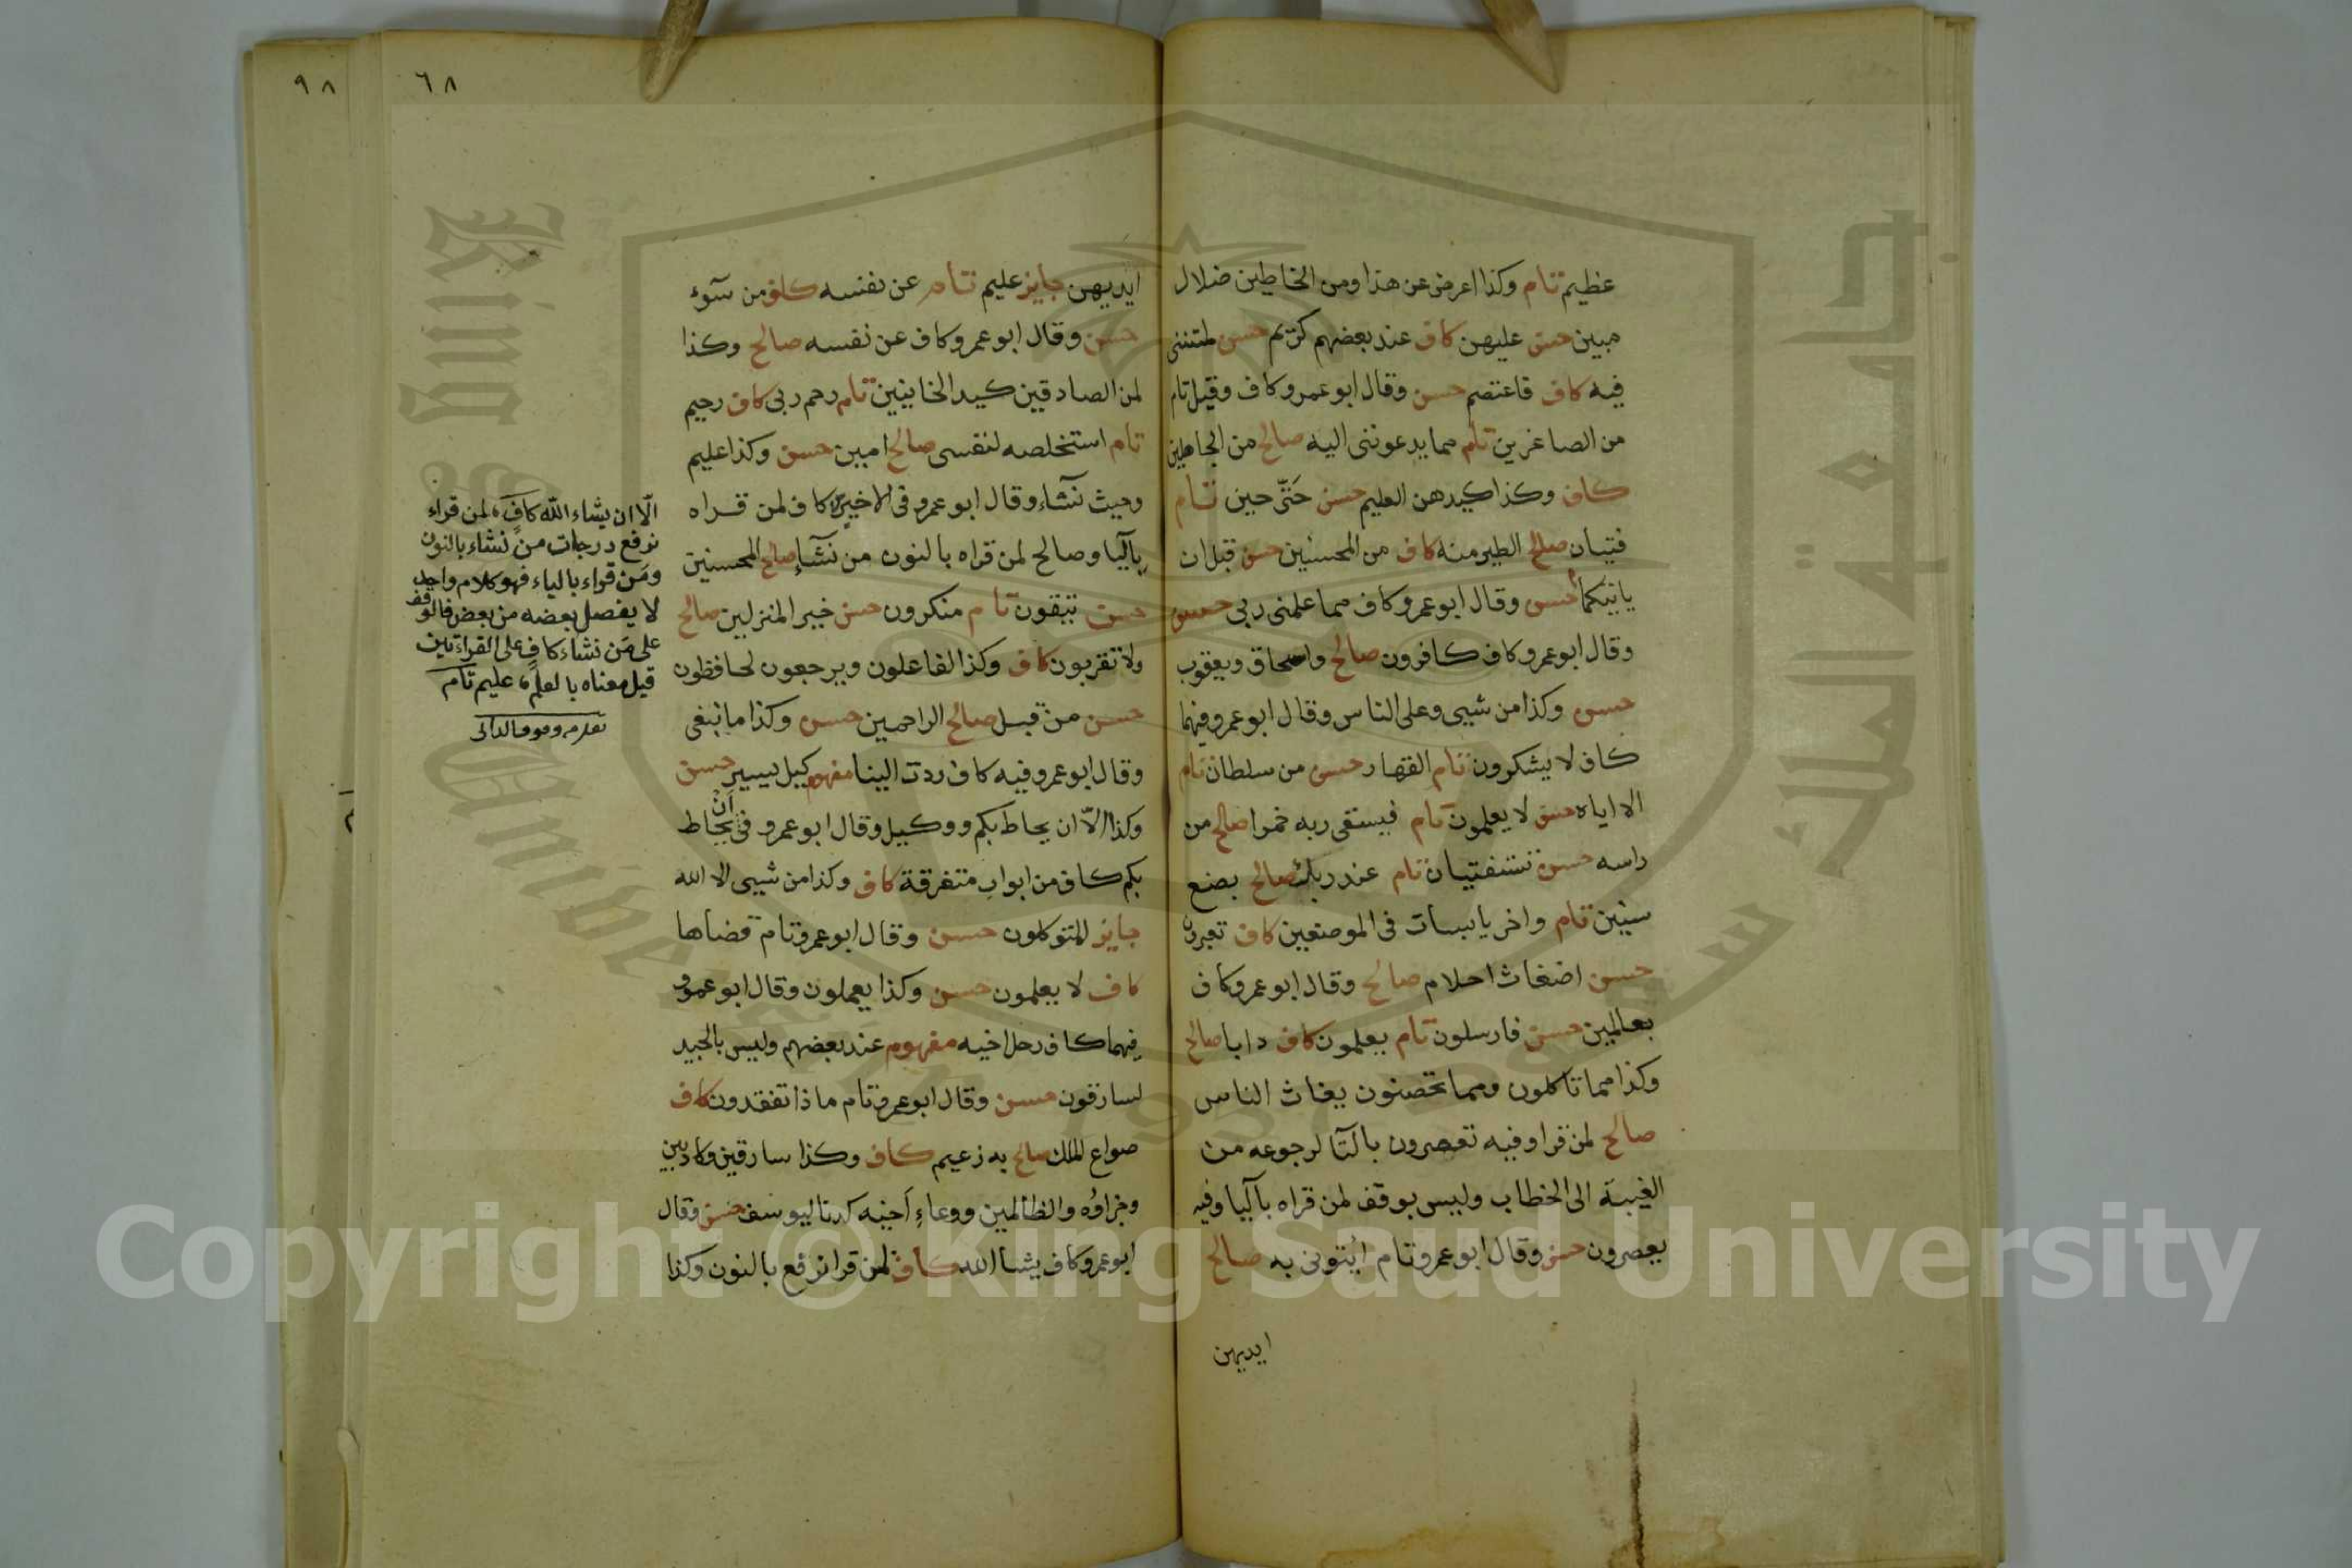 عظيم تام وكذا اعرض عن هذا ومن الخاطين ضلال
مبين حسن عليهن كاف عند بعضهم كريم حسن لمتننى
فيه كاف فاعتصم حسن وقال ابو عمرو كاف وقيل تام
من الصاغرين تام مما يدعوننى اليه صالح من الجاهلين
كاف وكذا كيدهن العليم حسن حَتّى حين تام
فتيان صالح الطير منه كاف من المحسنين حسن قبل ان
ياتيكما حسن وقال ابو عمرو كاف مما علمنى ربى حسن
وقال ابو عمرو كاف كافرون صالح واسحاق ويعقوب
حسن وكذا من شيى وعلى الناس وقال ابو عمرو فيهما
كاف لا يشكرون تام القهار حسن من سلطان تام
الا اياه حسن لا يعلمون تام فيسقى ربه خمرا صالح من
راسه حسن تستفتيان تام عند ربك صالح بضع
سنين تام واخر يابسات فى الموضعين كاف تعبرون
حسن اضغاث احلام صالح وقال ابو عمرو كاف
بعالمين حسن فارسلون تام يعلمون كاف دابا صالح
وكذا مما تاكلون ومما تحصنون يغاث الناس
صالح لمن قرا وفيه تعصرون بالتآ لرجوعه من
الغيبة الى الخطاب وليس بوقف لمن قراه بآليا وفيه
يعصرون حسن وقال ابو عمرو تام ائتونى به صالح
ايديهن
٩٨
٦٨
ايديهن جايز عليم تام عن نفسه كاف من سوء
حسن وقال ابو عمرو كاف عن نفسه صالح وكذا
لمن الصادقين كيد الخاينين تام رحم ربى كاف رحيم
تام استخلصه لنفسى صالح امين حسن وكذا عليم
وحيث نشاء وقال ابو عمرو فى الاخير كاف لمن قراه
بآليا وصالح لمن قراه بالنون من نشآء صالح المحسنين
حسن يتقون تام منكرون حسن خير المنزلين صالح
ولا تقربون كاف وكذا لفاعلون ويرجعون لحافظون
حسن من قبل صالح الراحمين حسن وكذا ما نبغى
وقال ابو عمرو فيه كاف ردت الينا مفهوم كيل يسير حسن
وكذا الاّ ان يحاط بكم ووكيل وقال ابو عمرو فى أن يحاط
بكم كاف من ابواب متفرقة كاف وكذا من شيى الا الله
جايز المتوكلون حسن وقال ابو عمرو تام قضاها
كاف لا يعلمون حسن وكذا يعملون وقال ابو عمرو
فيهما كاف رحل اخيه مفهوم عند بعضهم وليس بالجيد
لسارقون حسن وقال ابو عمرو تام ماذا تفقدون كاف
صواع الملك صالح به زعيم كاف وكذا سارقين وكاذبين
وجزاؤه والظالمين ووعاءِ أخيه كدنا ليوسف حسن وقال
ابو عمرو كاف يشا الله كاف لمن قرا نرفع بالنون وكذا
الّا ان يشاء الله كافٍ، لمن قراء
نرفع درجات من نشاء بالنون
ومَن قراء بالياء فهو كلام واحد
لا يفصل بعضه من بعض فالوقف
على مَن نشاء كافٍ على القراءتين
قيل معناه بالعلم، عليم تام